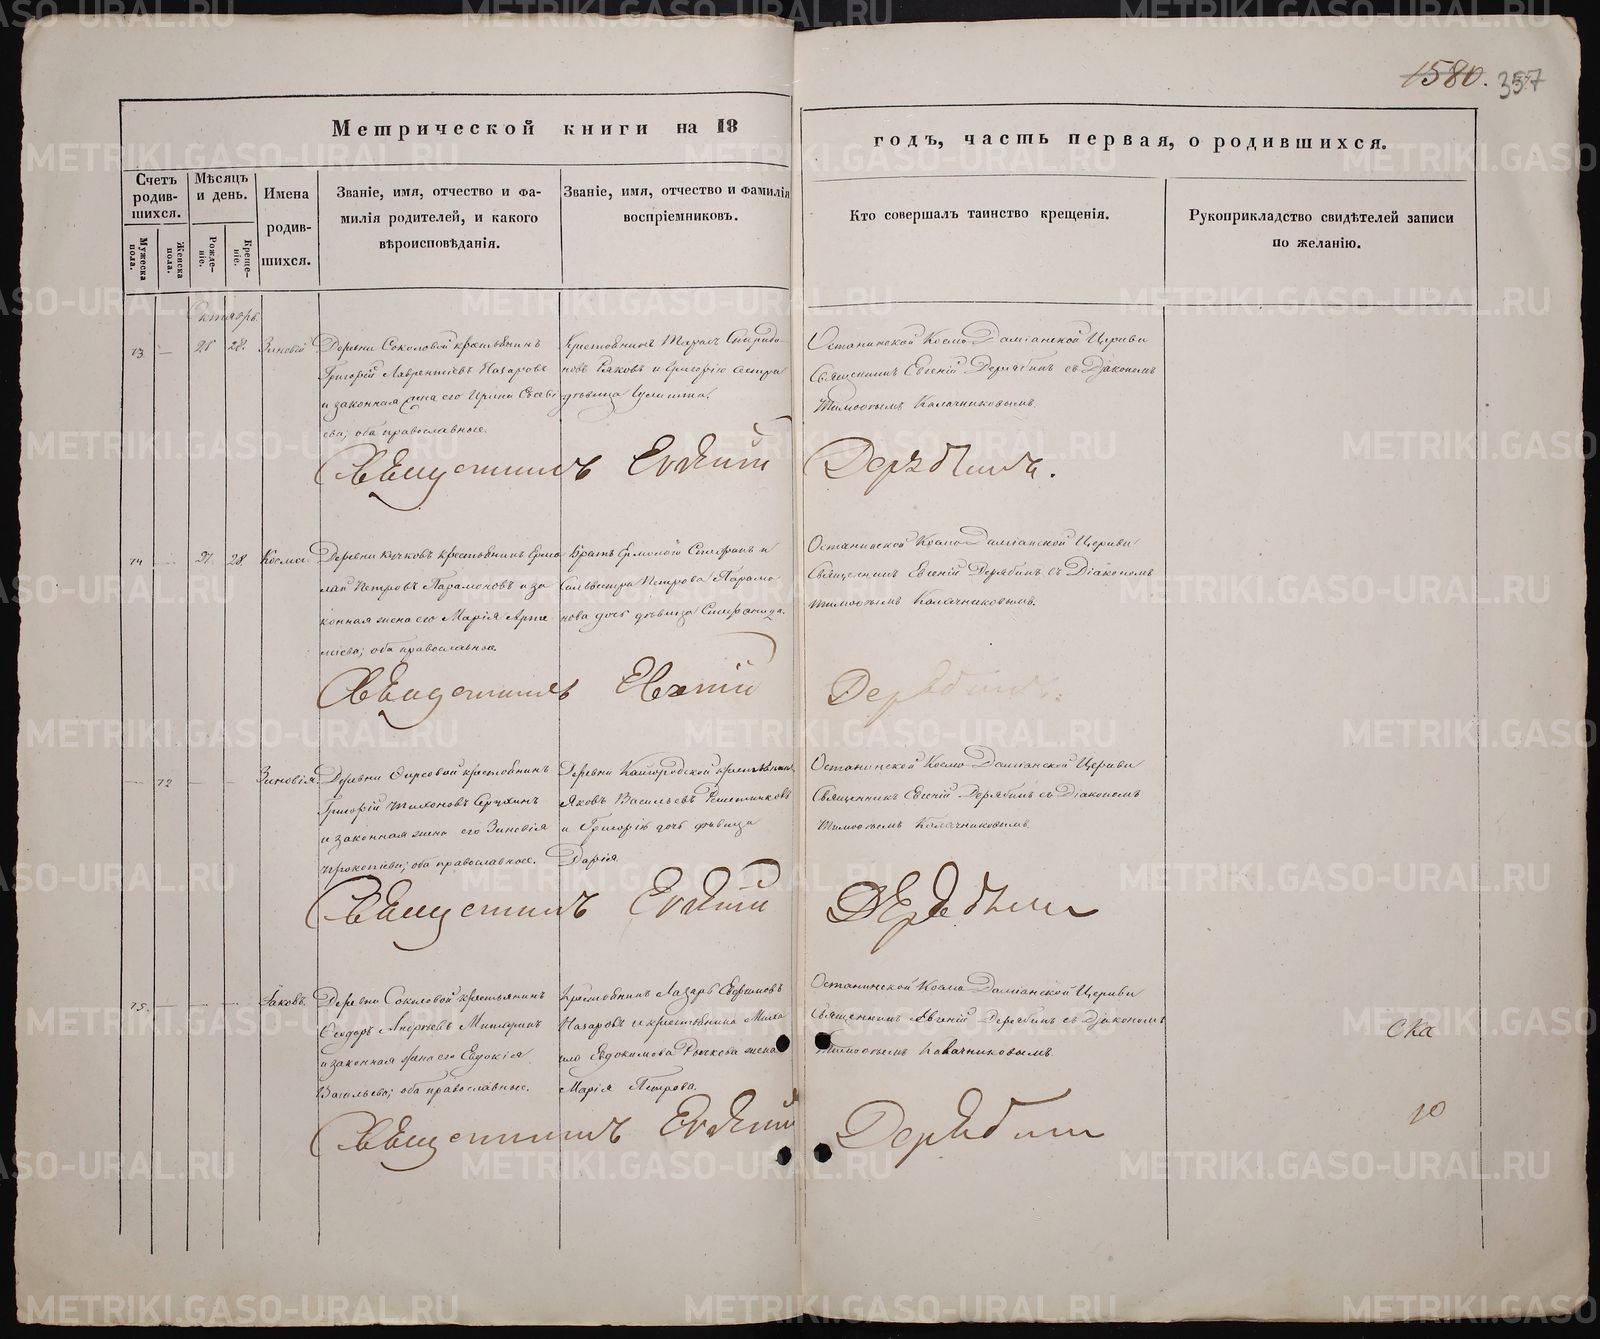 1580. 357
Метрической книги на 18
годъ, часть первая, о родившихся.
Счетъ родив-шихся.
Мужеска пола.
Женска пола.
Мѣсяцъ и день.
Рожде-ніе.
Креще-ніе.
Имена
родив-
шихся.
Званіе, имя, отчество и фа-
милія родителей, и какого
вѣроисповѣданія.
Званіе, имя, отчество и фамилія
воспріемниковъ.
Кто совершалъ таинство крещенія.
Рукоприкладство свидѣтелей записи
по желанію.
Октябрь.
73 — 28. Зиновій
Деревни Соколовой крестьянинъ
Григорій Лаврентіевъ Назаровъ
и законная жена его Ирина
ева; оба православные.
Крестьянинъ
и Григорію сестра
дѣвица
Останинской Космо-Даміанской Церкви
Священникъ Евгеній Дерябинъ съ Діакономъ
Тимоѳеемъ Калачниковымъ.
Священникъ Евгеній Дерябинъ.
74 — 27. 28. Косма
Деревни крестьянинъ Ермо
лай Петровъ Парамоновъ и за
конная жена его Марія Арте
міева; оба православные.
Братъ Ермолаю Стефанъ и
Сильвестра Петрова Парамо
нова дочь дѣвица Стефанида.
Останинской Космо-Даміанской Церкви
Священникъ Евгеній Дерябинъ съ Діакономъ
Тимоѳеемъ Калачниковымъ.
Священникъ Евгеній Дерябинъ.
— 72 — — Зиновія.
Деревни Фирсовой крестьянинъ
Григорій Тихоновъ
и законная жена его Зиновія
Прокопіева; оба православные.
Деревни Кайгородской крестьянинъ
Яковъ Васильевъ Решетниковъ
и Григорію дочь дѣвица
Дарія.
Останинской Космо-Даміанской Церкви
Священникъ Евгеній Дерябинъ съ Діакономъ
Тимоѳеемъ Калачниковымъ.
Священникъ Евгеній Дерябинъ
75. — — — Іаковъ.
Деревни Соколовой крестьянинъ
Ѳеодоръ Андреевъ
и законная жена его Евдокія
Васильева; оба православные.
Крестьянинъ Лазарь Ефимовъ
Назаровъ и крестьянина Миха
ила Евдокимова Рычкова жена
Марія Петрова.
Останинской Косма Даміанской Церкви
Священникъ Евгеній Дерябинъ съ Діакономъ
Тимоѳеемъ Калачниковымъ.
Священникъ Евгеній Дерябинъ
METRIKI.GASO-URAL.RU